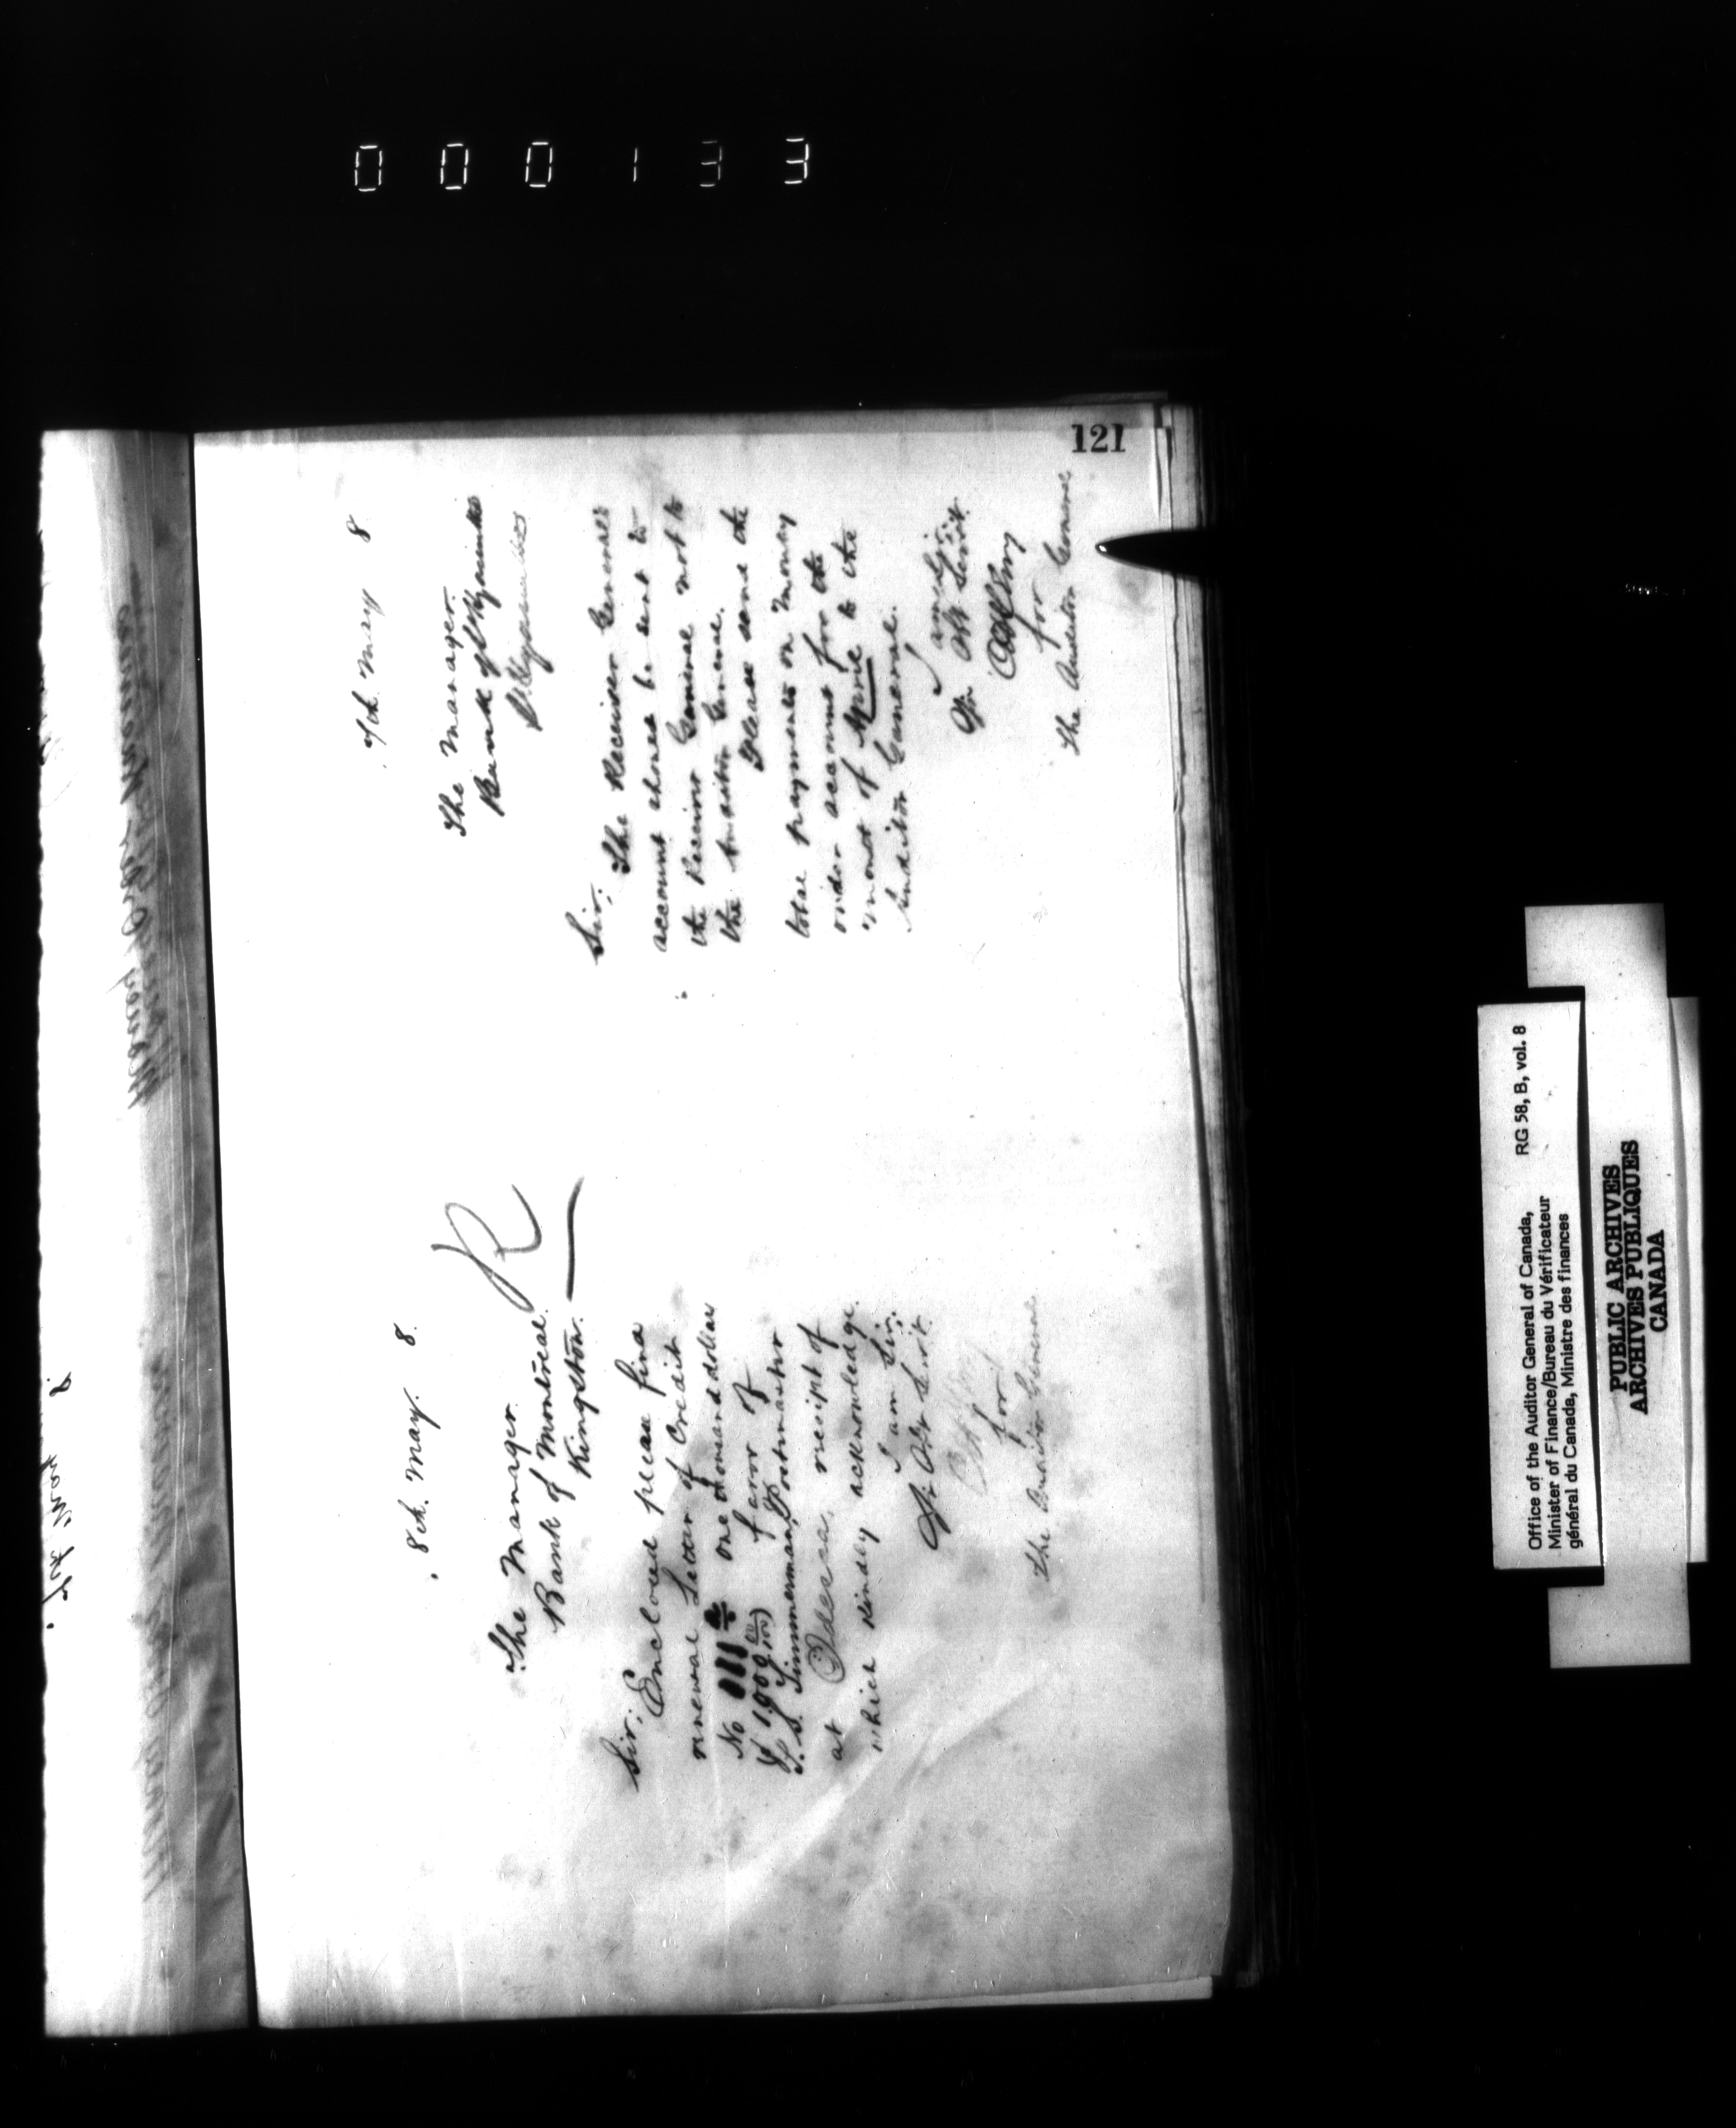 000133
121
8th. May. 8.
The Manager.
Bank of Montreal.
Kingston.
R
Sir;
Enclosed please find
renewal Letter of Credit
No one thousand dollars
($1,000 00/100) favor of
P. S. Timmerman, Postmaster
at Odessa, receipt of
which kindly acknowledge.
I am Sir;
Yr Obt Servt.
for
The Auditor General
7th. May 8
The Manager.
Bank of
Sir;
The Receiver General's
account should be sent to
the Receiver General not to
the Auditor General.
Please send the
total payments on money
order account for the
month of to the
Auditor General.
I am Sir;
Yr Obt Servt.
for
The Auditor General
Office of the Auditor General of Canada, RG 58, B, vol. 8
Minister of Finance/Bureau du Vérificateur
général du Canada, Ministre des finances
PUBLIC ARCHIVES
ARCHIVES PUBLIQUES
CANADA